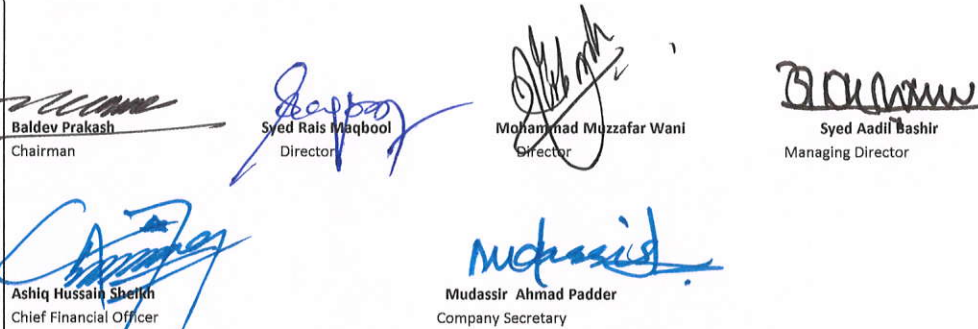 Baldev Prakash
Chairman
Syed Rais Maqbool
Director
Mohammad Muzzafar Wani
Director
Syed Aadil Bashir
Managing Director
Ashiq Hussain Sheikh
Chief Financial Officer
Mudassir
Mudassir Ahmad Padder
Company Secretary